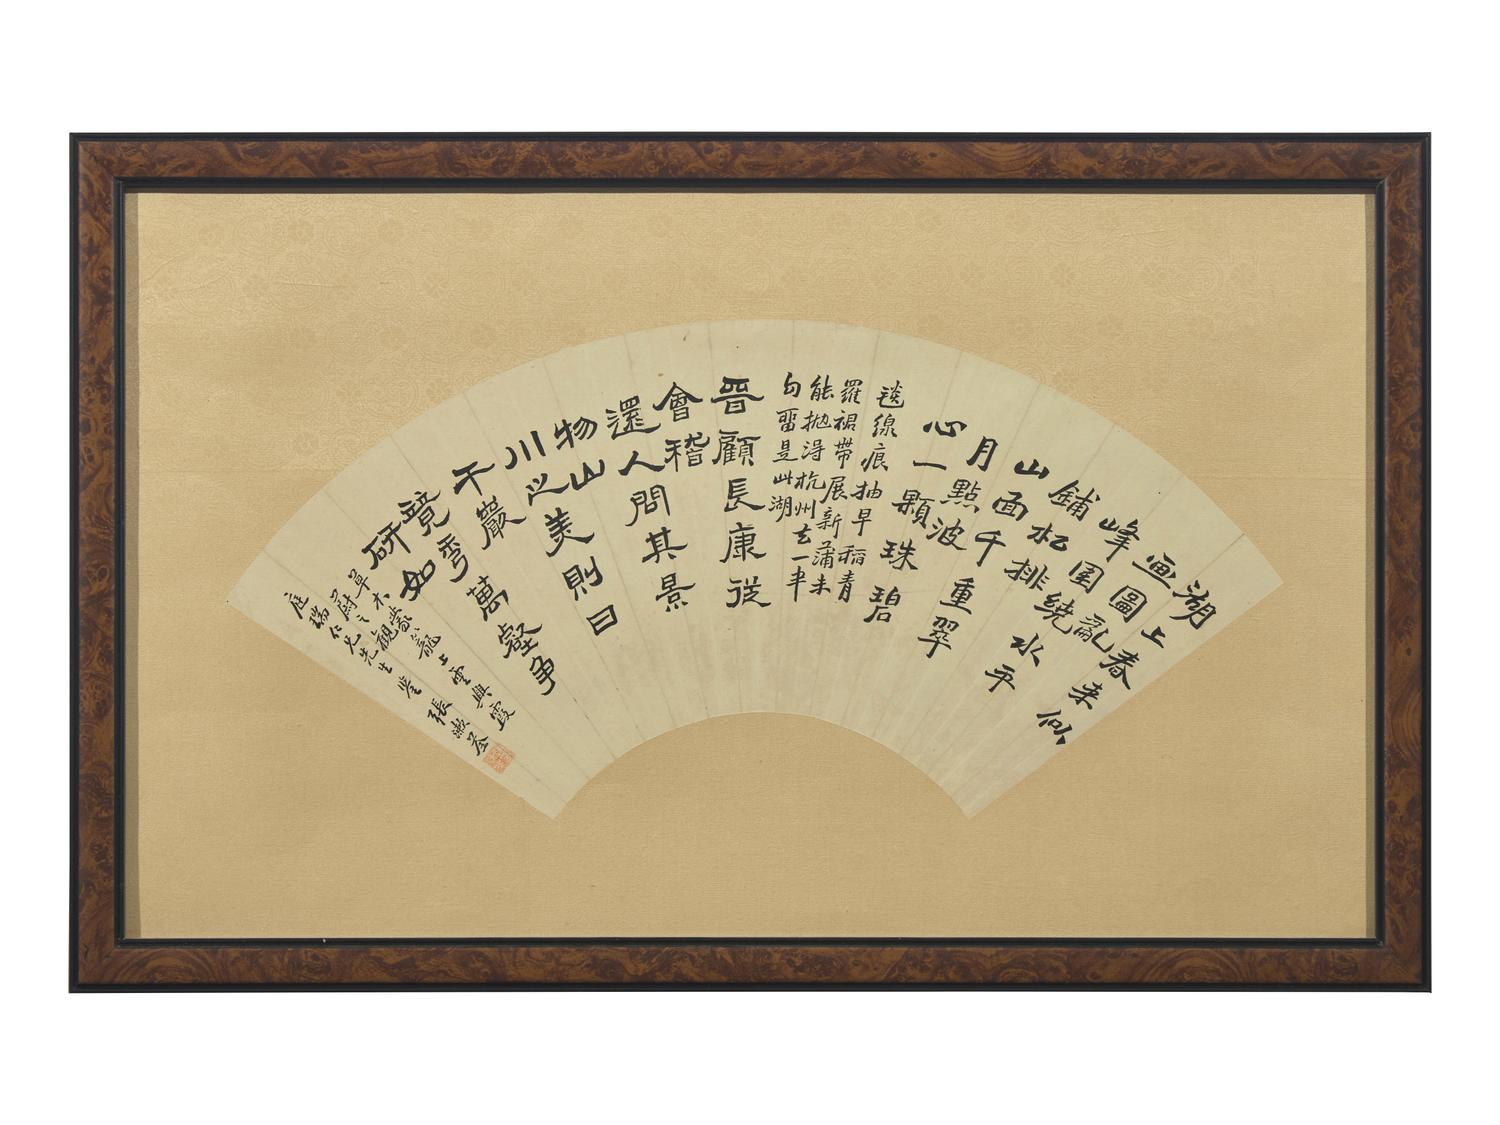 湖上春来似
画圖亂
峰圍繞水平
鋪松排
山面千重翠
月點波
心一顆珠碧
毯線痕抽早稻青
羅裙帶展新蒲未
能拋得杭州去一半
勾留是此湖
晉顧長康從
會稽
還人問其景
物山
川之美則曰
千巖
競秀萬壑爭
研如
草木蒙蘢上雲興霞
蔚之觀
庭瑞仁兄先生鉴 張漱